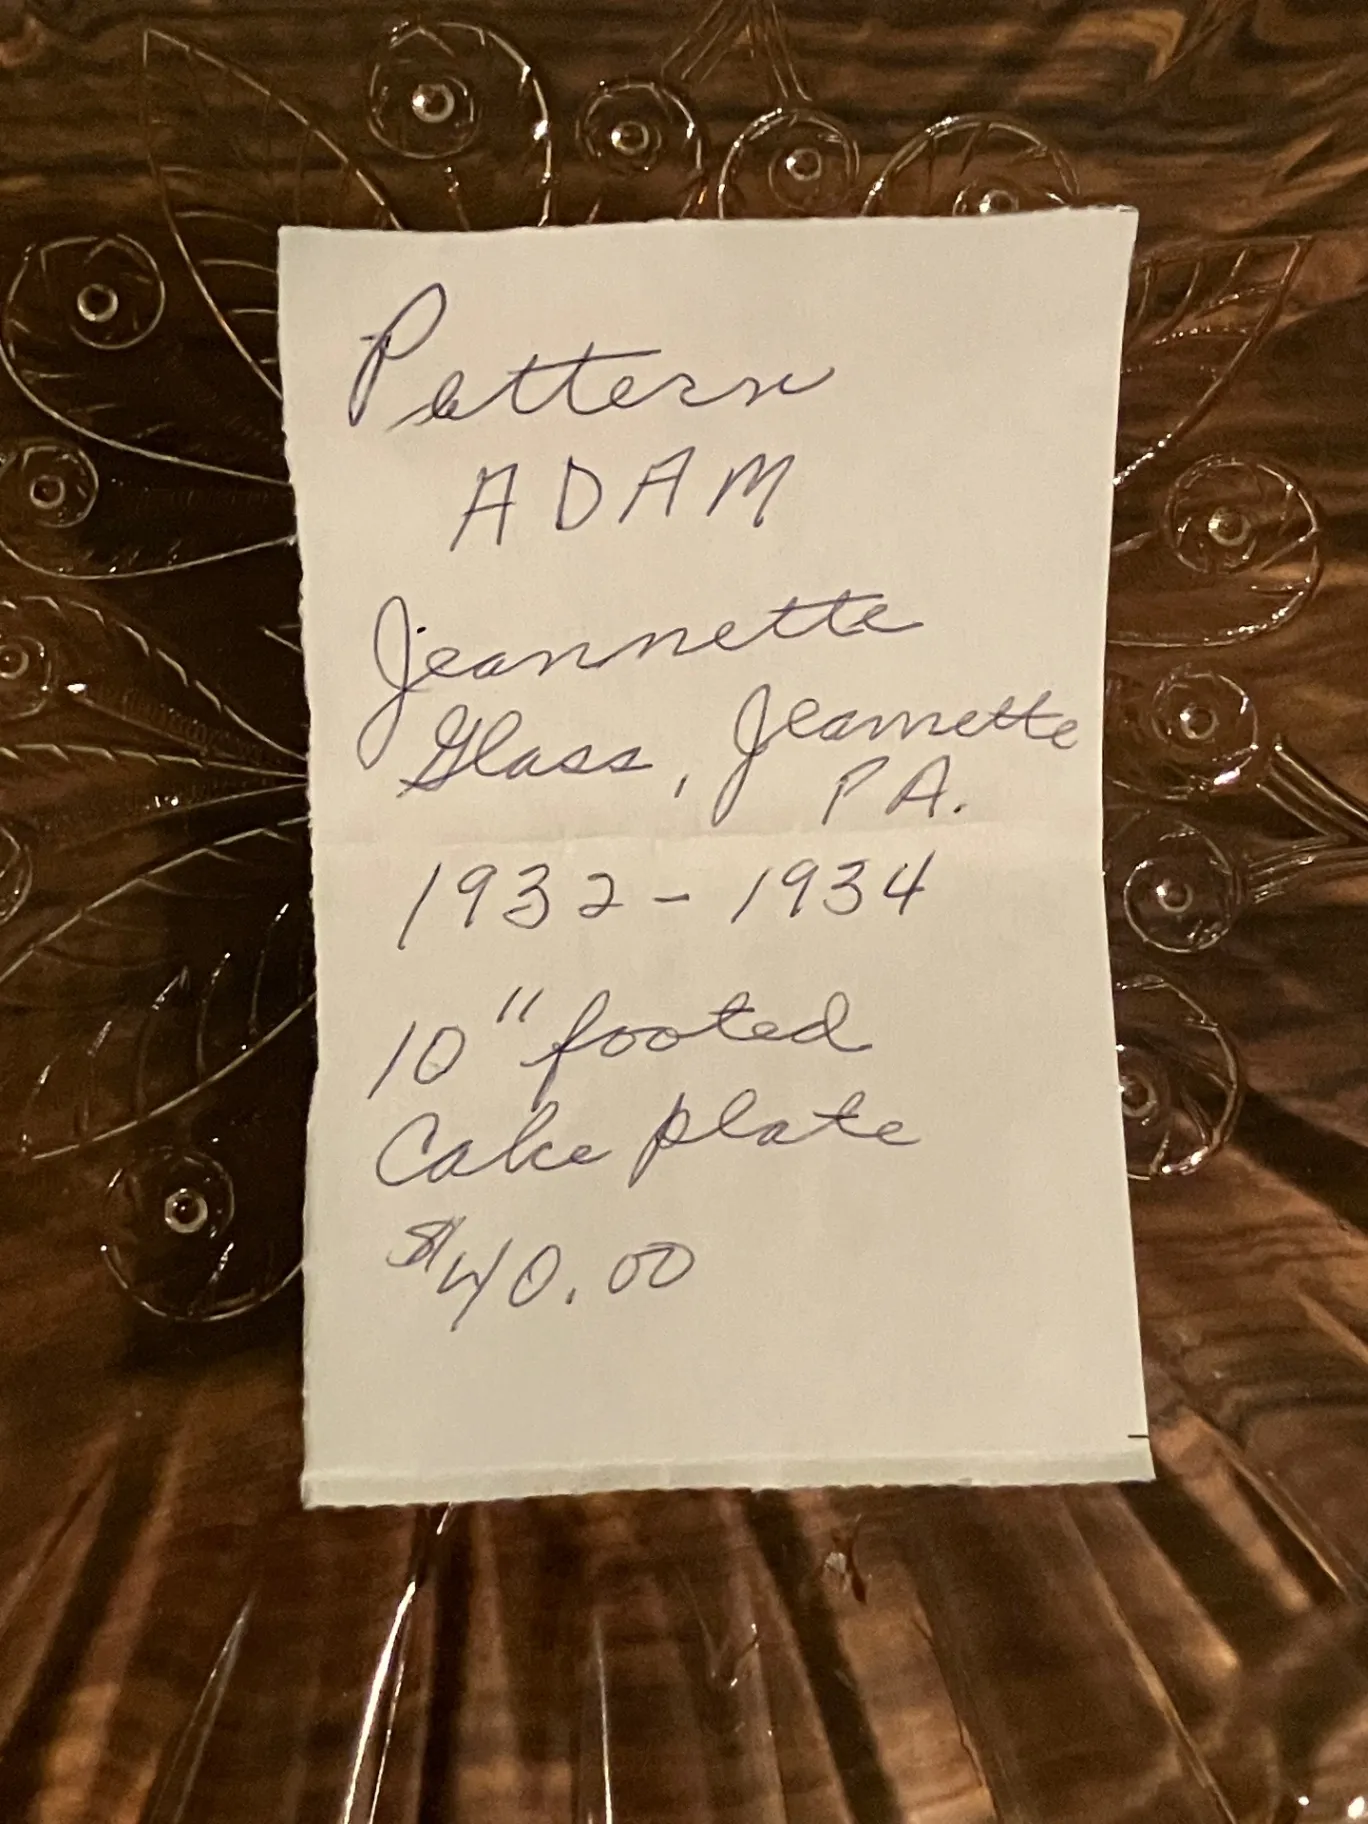 Pattern
ADAM
Jeannette
Glass, Jeannette
PA.
1932-1934
10" footed
Cake plate
$40.00